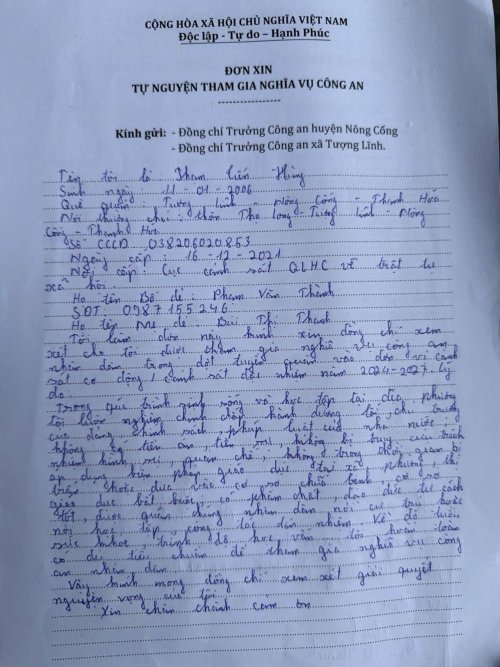 CỘNG HÒA XÃ HỘI CHỦ NGHĨA VIỆT NAM
Độc lập - Tự do – Hạnh Phúc
ĐƠN XIN
TỰ NGUYỆN THAM GIA NGHĨA VỤ CÔNG AN
Kính gửi: - Đồng chí Trưởng Công an huyện Nông Cống
- Đồng chí Trưởng Công an xã Tượng Lĩnh.
Tên tôi là: Phạm Tiến Hùng
Sinh ngày: 11 - 01 - 2006
Quê quán: Tượng Lĩnh - Nông Cống - Thanh Hóa
Nơi thường chú: thôn Thọ Long - Tượng Lĩnh - Nông
Cống - Thanh Hóa
Số CCCD: 038206020853
Ngày cấp: 16 - 12 - 2021
Nơi cấp: Cục cảnh sát QLHC về trật tự
xã hội
Họ tên Bố đẻ: Phạm Văn Thành
SĐT: 0987155246
Họ tên Mẹ đẻ: Bùi Thị Thanh
Tôi làm đơn này kính xin đồng chí xem
xét cho tôi được tham gia nghĩa vụ công an
nhân dân trong đợt tuyển quân vào đơn vị cảnh
sát cơ động / cảnh sát đặc nhiệm năm 2024-2027. Lý
do
Trong quá trình sinh sống và học tập tại địa phương
tôi luôn nghiêm chỉnh chấp hành đường lối, chủ trương
của đảng, chính sách, pháp luật của nhà nước,
không có tiền án, tiền sự, không bị truy cứu trách
nhiệm hình sự, quản chế, không trong thời gian bị
áp dụng biện pháp giáo dục tại xã, phường, thị
trấn hoặc đưa vào cơ sở chữa bệnh, cơ sở
giáo dục bắt buộc, có phẩm chất, đạo đức tư cách
tốt, được quần chúng nhân dân nơi cư trú hoặc
nơi học tập, công tác tín nhiệm. Về độ tuổi
sức khỏe trình độ học vấn tôi hoàn toàn
có đủ tiêu chuẩn để tham gia nghĩa vụ công
an nhân dân
Vậy kính mong đồng chí xem xét giải quyết
nguyện vọng của tôi
Xin chân thành cảm ơn